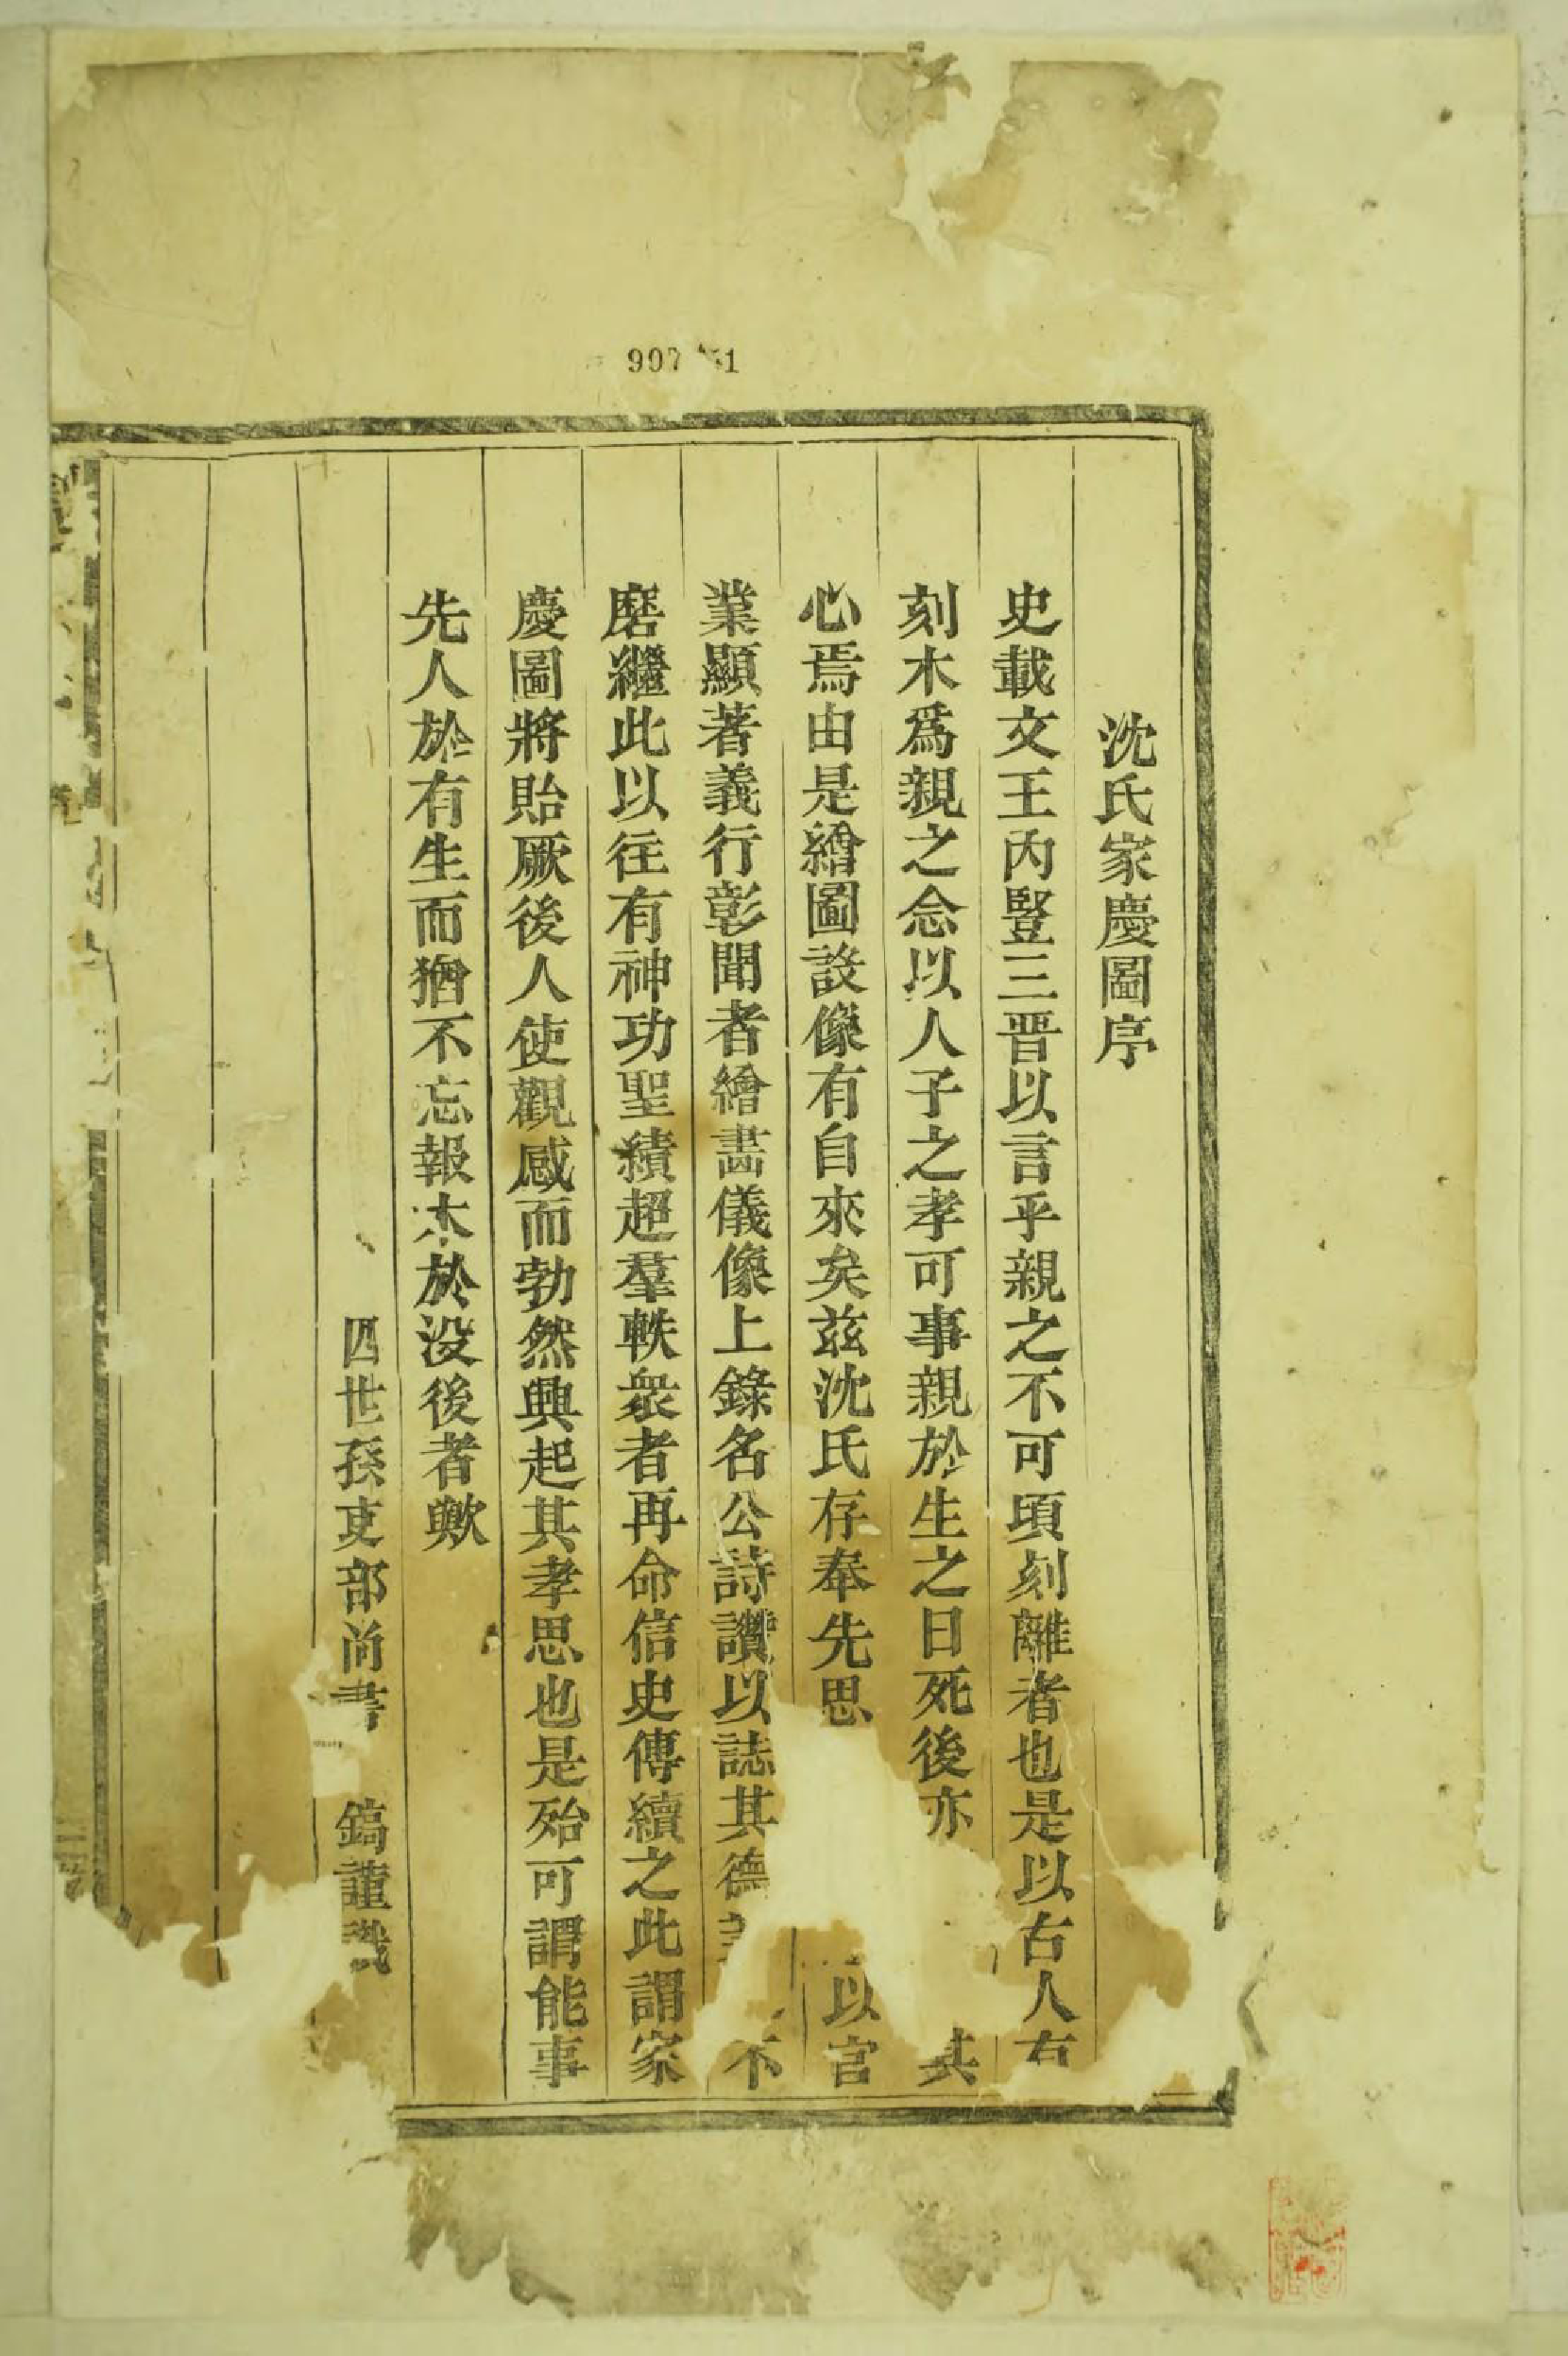 沈氏家慶圖序
史載文王內豎三晋以言乎親之不可頃刻離者也是以古人有
刻木爲親之念以人子之孝可事親於生之日死後亦其
心焉由是繪圖設像有自來矣兹沈氏存奉先思以官
業顯著義行彰聞者繪畵儀像上錄名公詩讚以誌其德不
磨繼此以往有神功聖績超羣軼衆者再命信史傳續之此謂家
慶圖將貽厥後人使觀感而勃然興起其孝思也是殆可謂能事
先人於有生而猶不忘報本於没後者歟
四世孫吏部尚書鎬謹識